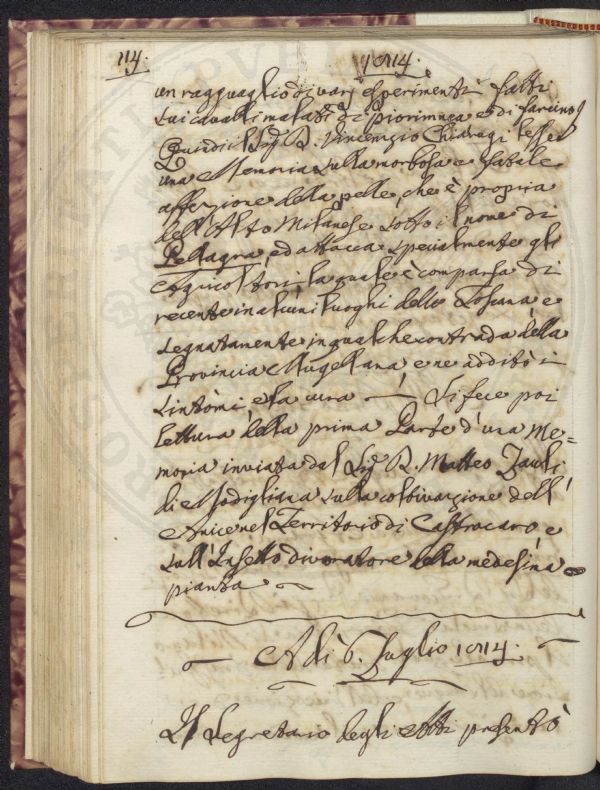 114.
1814.
un ragguaglio di varj esperimenti fatti
sui cavalli malati di e di farcino
Quindi il Sig. D. Vincenzio Chiarugi lesse
una Memoria sulla morbosa e fatale
affezione della pelle, che è propria
dell'Alto Milanese sotto il nome di
Pellagra, ed attacca specialmente gli
Agricoltori, la quale è comparsa di
recente in alcuni luoghi della Toscana e
segnatamente in qualche contrada della
Provincia Mugellana, e ne additò i
sintomi, e la cura — Si fece poi
lettura della prima Parte d'una Me=
moria inviata dal Sig. D. Matteo Zauli
di Modigliana sulla coltivazione dell'
Anice nel Territorio di Castrocaro, e
sull'Insetto divoratore della medesima
pianta ~
~ A dì 6. Luglio 1814. ~
Il Segretario degli Atti presentò